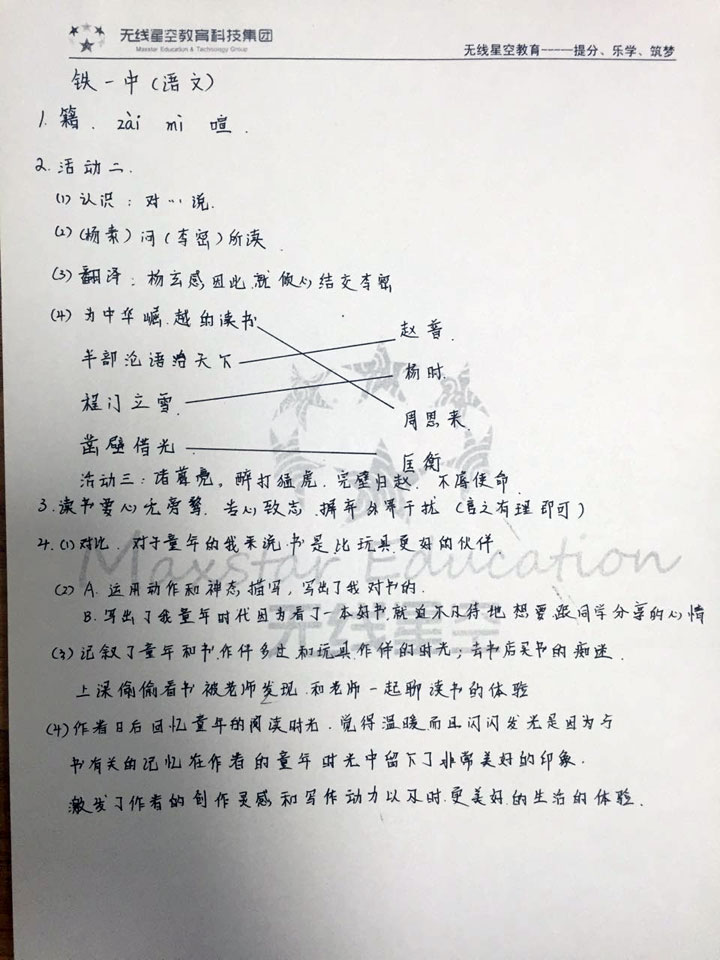 无线星空教育科技集团
Maxstar Education & Technology Group
无线星空教育-----提分、乐学、筑梦
铁一中（语文）
1. 籍. zài mì 喧.
2. 活动二.
(1) 认识：对…说.
(2) (杨素) 问 (李密) 所读.
(3) 翻译：杨玄感因此就倾心结交李密
(4) 为中华崛起的读书 赵普.
半部论语治天下 杨时.
程门立雪. 周恩来.
凿壁借光 匡衡
活动三：诸葛亮。醉打猛虎. 完璧归赵. 不辱使命.
3. 读书要心无旁骛. 专心致志. 摒弃外界干扰（言之有理即可）
4. (1) 对比. 对于童年的我来说书是比玩具更好的伙伴.
Maxstar Education
(2) A. 运用动作和神态描写，写出了我对书的.
B. 写出了我童年时代因为看了一本好书就迫不及待地想要跟同学分享的心情
无线星空
(3) 记叙了童年和书作伴多过和玩具作伴的时光；去书店买书的痴迷.
上课偷偷看书被老师发现. 和老师一起聊读书的体验
(4) 作者日后回忆童年的阅读时光. 觉得温暖而且闪闪发光是因为与
书有关的记忆在作者的童年时光中留下了非常美好的印象.
激发了作者的创作灵感和写作动力以及对更美好的生活的体验.